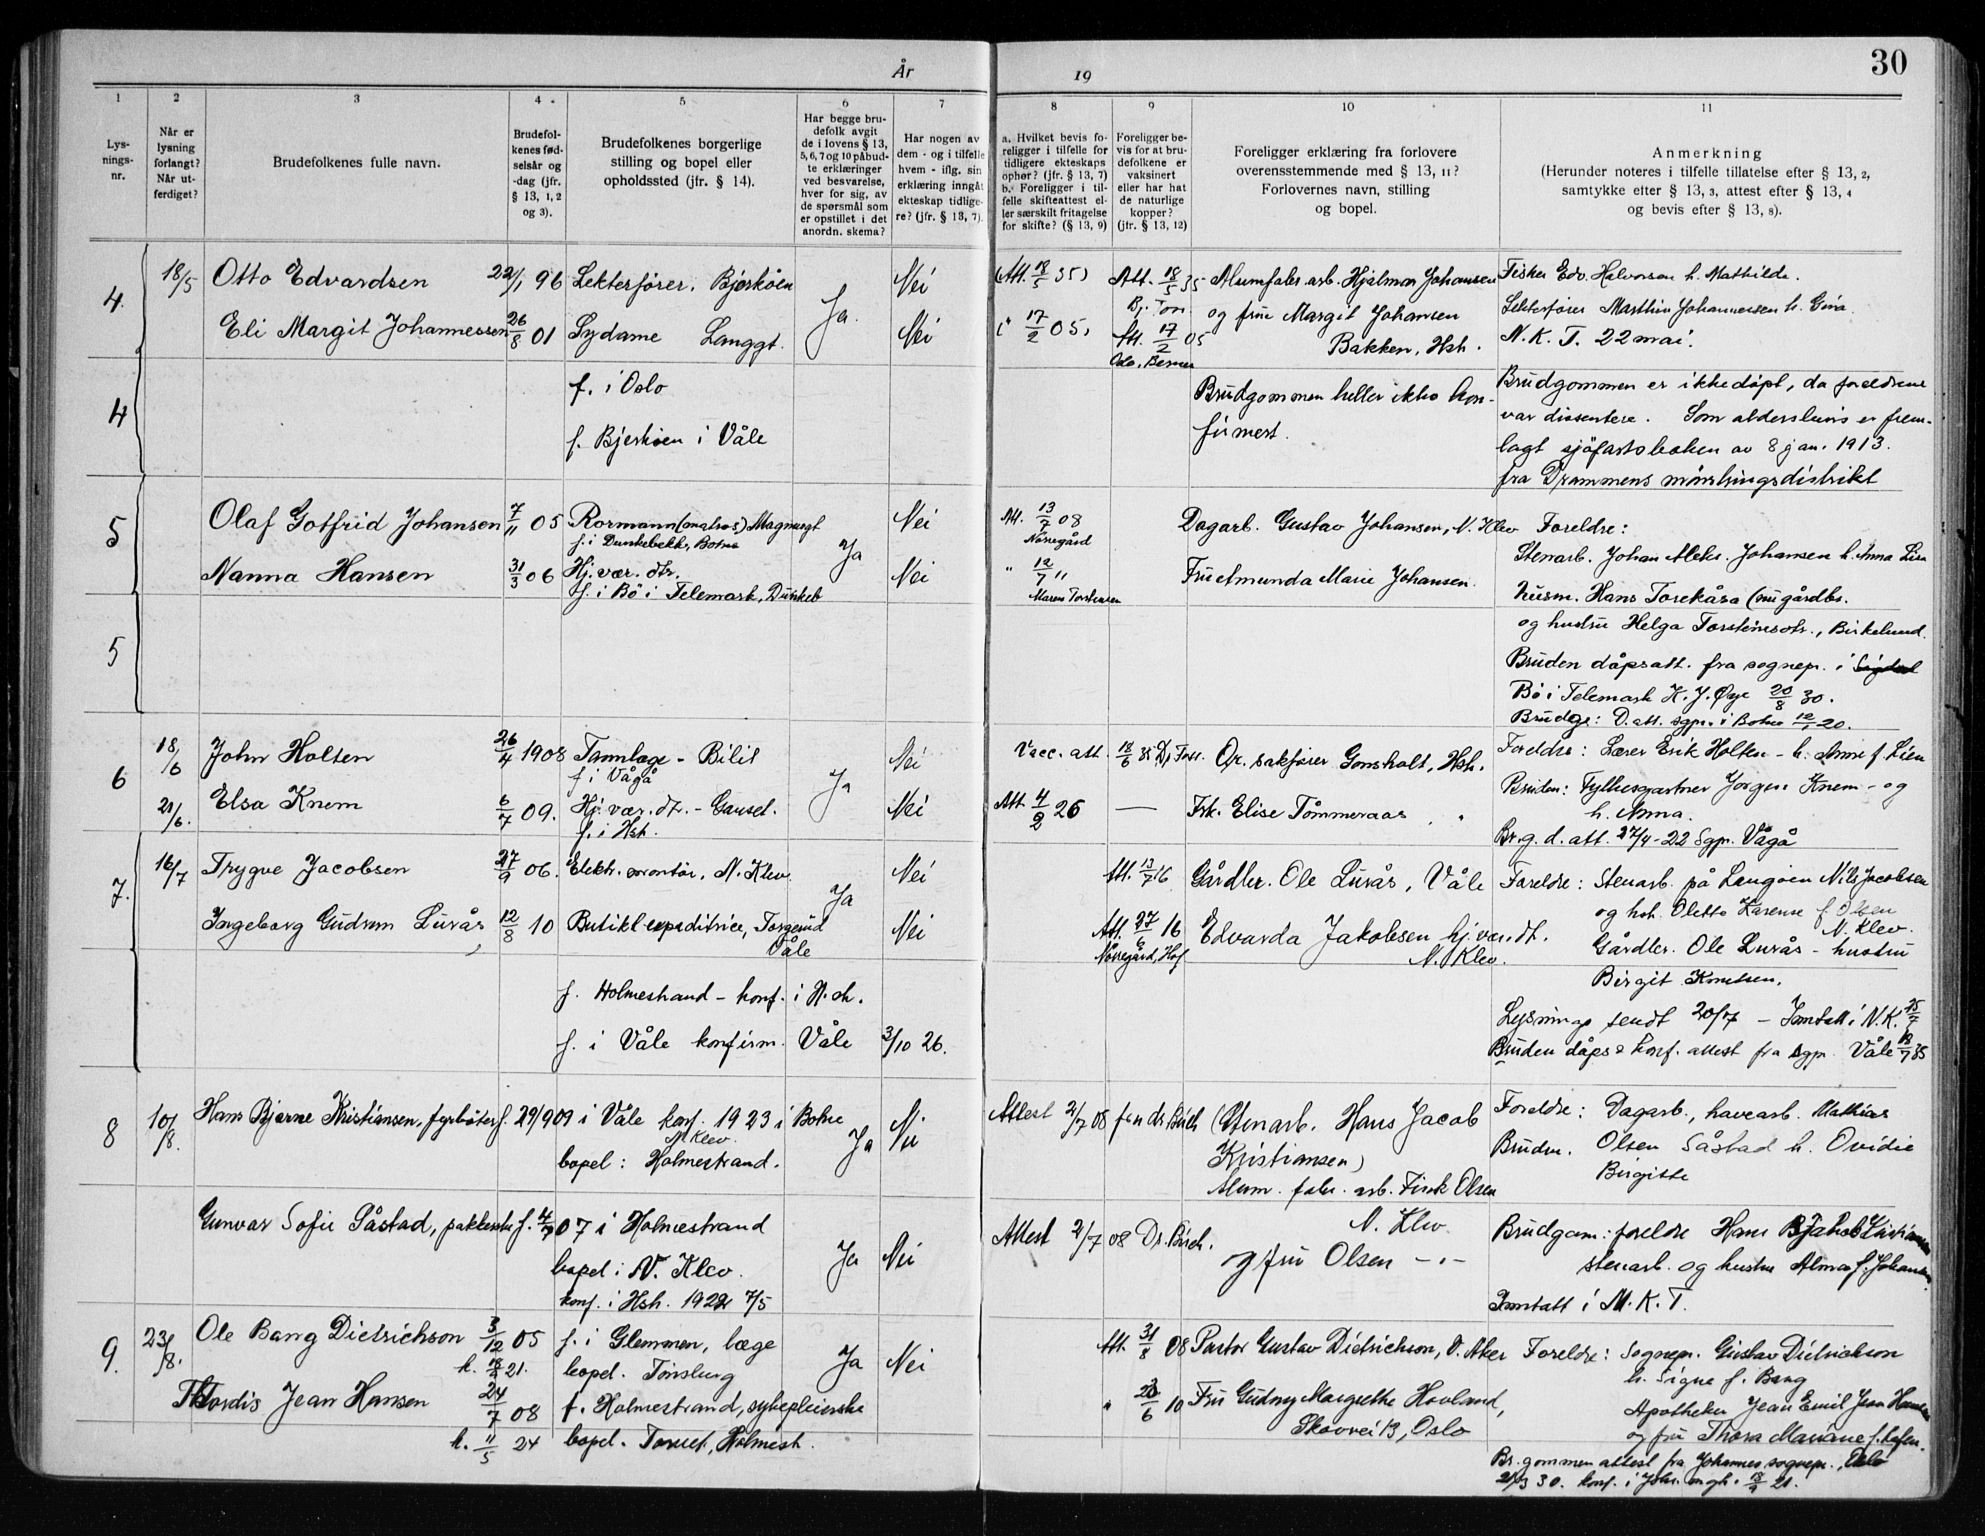 År
19
30
1
2
3
4
5
6
7
8
9
10
11
Lys-
nings-
nr.
Når er
lysning
forlangt?
Når ut-
ferdiget?
Brudefolkenes fulle navn.
Brudefol-
kenes fød-
selsår og
-dag (jfr.
§ 13, 1, 2
og 3).
Brudefolkenes borgerlige
stilling og bopel eller
opholdssted (jfr. § 14).
Har begge bru-
defolk avgit
de i lovens § 13,
5, 6, 7 og 10 påbud-
te erklæringer
ved besvarelse,
hver for sig, av
de spørsmål som
er opstillet i det
anordn. skema?
Har nogen av
dem - og i tilfelle
hvem - iflg. sin
erklæring inngåt
ekteskap tidlige-
re? (jfr. § 13, 7).
a. Hvilket bevis fo-
religger i tilfelle for
tidligere ekteskaps
ophør? (jfr. § 13, 7)
b. Foreligger i til-
felle skifteattest el-
ler særskilt fritagelse
for skifte? (§ 13, 9)
Foreligger be-
vis for at bru-
defolkene er
vaksinert
eller har hat
de naturlige
kopper?
(jfr. § 13, 12)
Foreligger erklæring fra forlovere
overensstemmende med § 13, 11?
Forlovernes navn, stilling
og bopel.
Anmerkning
(Herunder noteres i tilfelle tillatelse efter § 13, 2,
samtykke efter § 13, 3, attest efter § 13, 4
og bevis efter § 13, 8).
4.
18/5 Otto Edvardsen 22/1 96 Lektefører. Bjerkøen Ja. Nei
Eli Margit Johannessen 26/8 01 Sydame Langgt. Nei
4
f. i Oslo
f. Bjerkøen i Våle
(Att. 18/5 35) Att. 18/5 35 Alumfabr. arb. Hjalmar Johansen
17/2 05) Att. 17/2 05 og frue Margit Johansen
Bakken, Hsh.
Brudgommen heller ikke kon-
firmert.
Fisker Edv. Halvorsen h. Mathilde.
Lektefører Marthin Johannessen h. Gina
N. K. T. 22 mai.
Brudgommen er ikke døpt, da foreldrene
var dissentere. Som aldersbevis er frem-
lagt sjøfartsboken av 8 jan. 1913.
fra Drammens mønstringsdistrikt
5
Olaf Gotfrid Johansen 7/11 05 Rormann (matros) Magnusgt Nei
f. i Dunkebekk, Botne
Ja
Nanna Hansen 31/3 06 Hj. vær. dtr. Nei
f. i Bö i Telemark, Dunkeb
5
Att. 13/7 08 Dagarb. Gustav Johansen, N. Klev
Nøregård
" 12/7 " Marie Johansen.
Foreldre:
Stenarb. Johan Aleks. Johansen h. Anna
husm. Hans Torekåsa (nu gårdbr.
og hustru Helga Torsteinsdtr., Birkelund.
Bruden dåpsatt. fra sognepr. i
Bö i Telemark 20/8 30.
Brudgr: D. att. sgpr. i Botne 12/1 20.
6
18/6 John Holten 26/4 1908 Tannlæge - Bilit Nei
f. i Vågå
Ja
21/6. Elsa Knem 6/7 09. Hj. vær. dtr. - Gauset. Nei
f. i Hsh.
Vacc. att. 18/6 35 Or. sakfører Gonsholt, Hsh.
Att 4/2 26 — Frk. Elise Tømmeraas "
Foreldre: Lærer Erik Holten - h. Anne f. Lien
Bruden: Fylkesgartner Jørgen Knem - og
h. Anna.
Br.g. d. att. 27/4-22 Sgpr. Vågå
7.
16/7 Trygve Jacobsen 27/9 06. Elektr. montør, N. Klev. Nei
Ja
Ingeborg Gudrun Lurås 12/8 10 Butikkexpeditrice, Torgerud Nei
Våle
f. Holmestrand - konf. i H. sh.
f. i Våle konfirm. Våle 3/10 26.
Att. 13/7 16 Gårdbr. Ole Lurås, Våle
Att. 27/6 16 Edvarda Jakobsen hj. vær. dt.
Nøregård, Hof N. Klev.
Foreldre: Stenarb. på Langøen Nils Jacobsen
og hst. Olette Karense f. Olsen
N. Klev.
Gårdbr. Ole Lurås - hustru
Birgit Knutsen.
Lysning sendt 20/7 - Inntatt i N.K. 25/7
Bruden dåps & konf. attest fra sgpr. Våle 18/7 35
8
10/8. Hans Bjarne Kristiansen, fyrbøter f. 29/9 09 i Våle konf. 1923 i Botne Nei
N. Klev. Ja
bopel: Holmestrand.
Gunvar Sofie Såstad, f. 4/7 07 i Holmestrand Ja Nei
bopel i N. Klev.
konf. i Hsh. 1922 7/5
Attest 2/7 08 fra dr. Birch (Stenarb. Hans Jacob
Kristiansen)
Alum. fabr. arb. Olsen
N. Klev.
Attest 2/7 08 Dr. Birch. og fru Olsen - " -
Foreldre: Dagarb., havearb. Mathias
Bruden. Olsen Såstad h. Ovidie
Birgitte
Brudgom: foreldre Hans Jakob Kristiansen
stenarb. og hustru Alma f. Johansen
Inntatt i N. K. T.
9.
23/8. Ole Bang Dietrichson 3/12 05 f. i Glemmen, læge
k. 21. bopel. Tønsberg Ja Nei
Thordis Jean Hansen 24/7 08 f. Holmestrand, sykepleierske
k. 11/5 24 bopel. Torvet, Holmest.
Att. 31/8 08 Pastor Gustav Dietrichson, V. Aker
" 23/6 10 Fru Gudny Margrethe Hovland,
Skovvei 13, Oslo
Foreldre: Sognepr. Gustav Dietrichson
h. Signe f. Bang
Apotheker Jean Emil Jean Hansen
og fru Thora Mariane f.
Br. gommen attest fra Johannes sognepr., Oslo
30. konf. i Joh. mgh. 21.